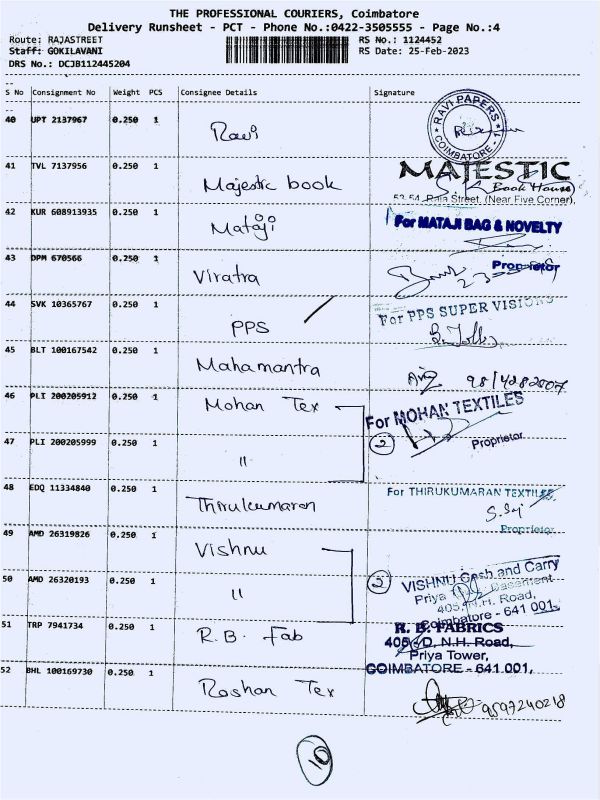 THE PROFESSIONAL COURIERS, Coimbatore
Delivery Runsheet - PCT - Phone No.:0422-3505555 - Page No.:4
Route: RAJASTREET RS No.: 1124452
Staff: GOKILAVANI RS Date: 25-Feb-2023
DRS No.: DCJB112445204
S No Consignment No Weight PCS Consignee Details Signature
40 UPT 2137967 0.250 1 Ravi RAVI PAPERS COIMBATORE - 1
41 TVL 7137956 0.250 1 Majestic book MAJESTIC
Book House
53-54, Raja Street, (Near Five Corner),
42 KUR 608913935 0.250 1 Mataji For MATAJI BAG & NOVELTY
Proprietor
43 DPM 670566 0.250 1 Viratra
44 SVK 10365767 0.250 1 PPS For PPS SUPER VISIONS
45 BLT 100167542 0.250 1 Mahamantra
46 PLI 200205912 0.250 1 Mohan Tex For MOHAN TEXTILES
47 PLI 200205999 0.250 1 " 2 Proprietor
48 EDQ 11334840 0.250 1 Thirukumaran For THIRUKUMARAN TEXTILES
Proprietor
49 AMD 26319826 0.250 1 Vishnu
50 AMD 26320193 0.250 1 " 2 VISHNU Cash and Carry
Priya Basement
405, N.H. Road,
Coimbatore - 641 001.
51 TRP 7941734 0.250 1 R.B. Fab R. B. FABRICS
405-D, N.H. Road,
Priya Tower,
COIMBATORE - 641 001.
52 BHL 100169730 0.250 1 Roshan Tex 9597240218
10